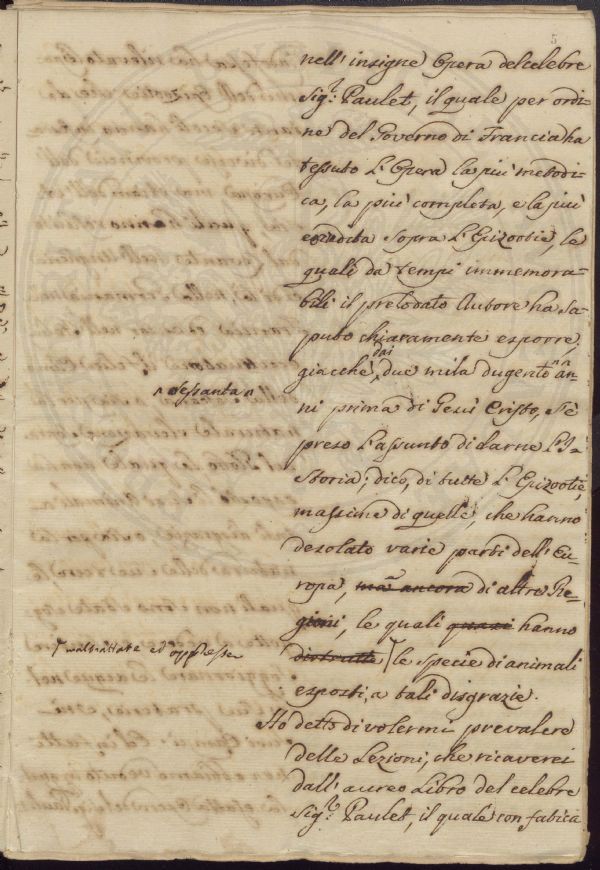 5
nell' insigne Opera del celebre
Sig.r Paulet, il quale per ordi-
ne del Governo di Francia ha
tessuto l'Opera la più metodi-
ca, la più completa, e la più
erudita sopra l'Epizootie, le
quali da tempi immemora-
bili il prelodato Autore ha sa-
puto chiaramente esporre,
giacchè dai due mila dugento "sessanta" an-
ni prima di Gesù Cristo, s'è
preso l'assunto di darne l'I-
storia, dico, di tutte l'Epizootie,
massime di quelle, che hanno
desolato varie parti dell'Eu-
ropa, ma ancora di altre Re-
gioni, le quali quasi hanno
distrutte maltrattate ed oppresse le specie di animali
esposti a tali disgrazie.
Ho detto di volermi prevalere
delle Lezioni, che ricaverei
dall'aureo Libro del celebre
Sig.r Paulet, il quale con fatica